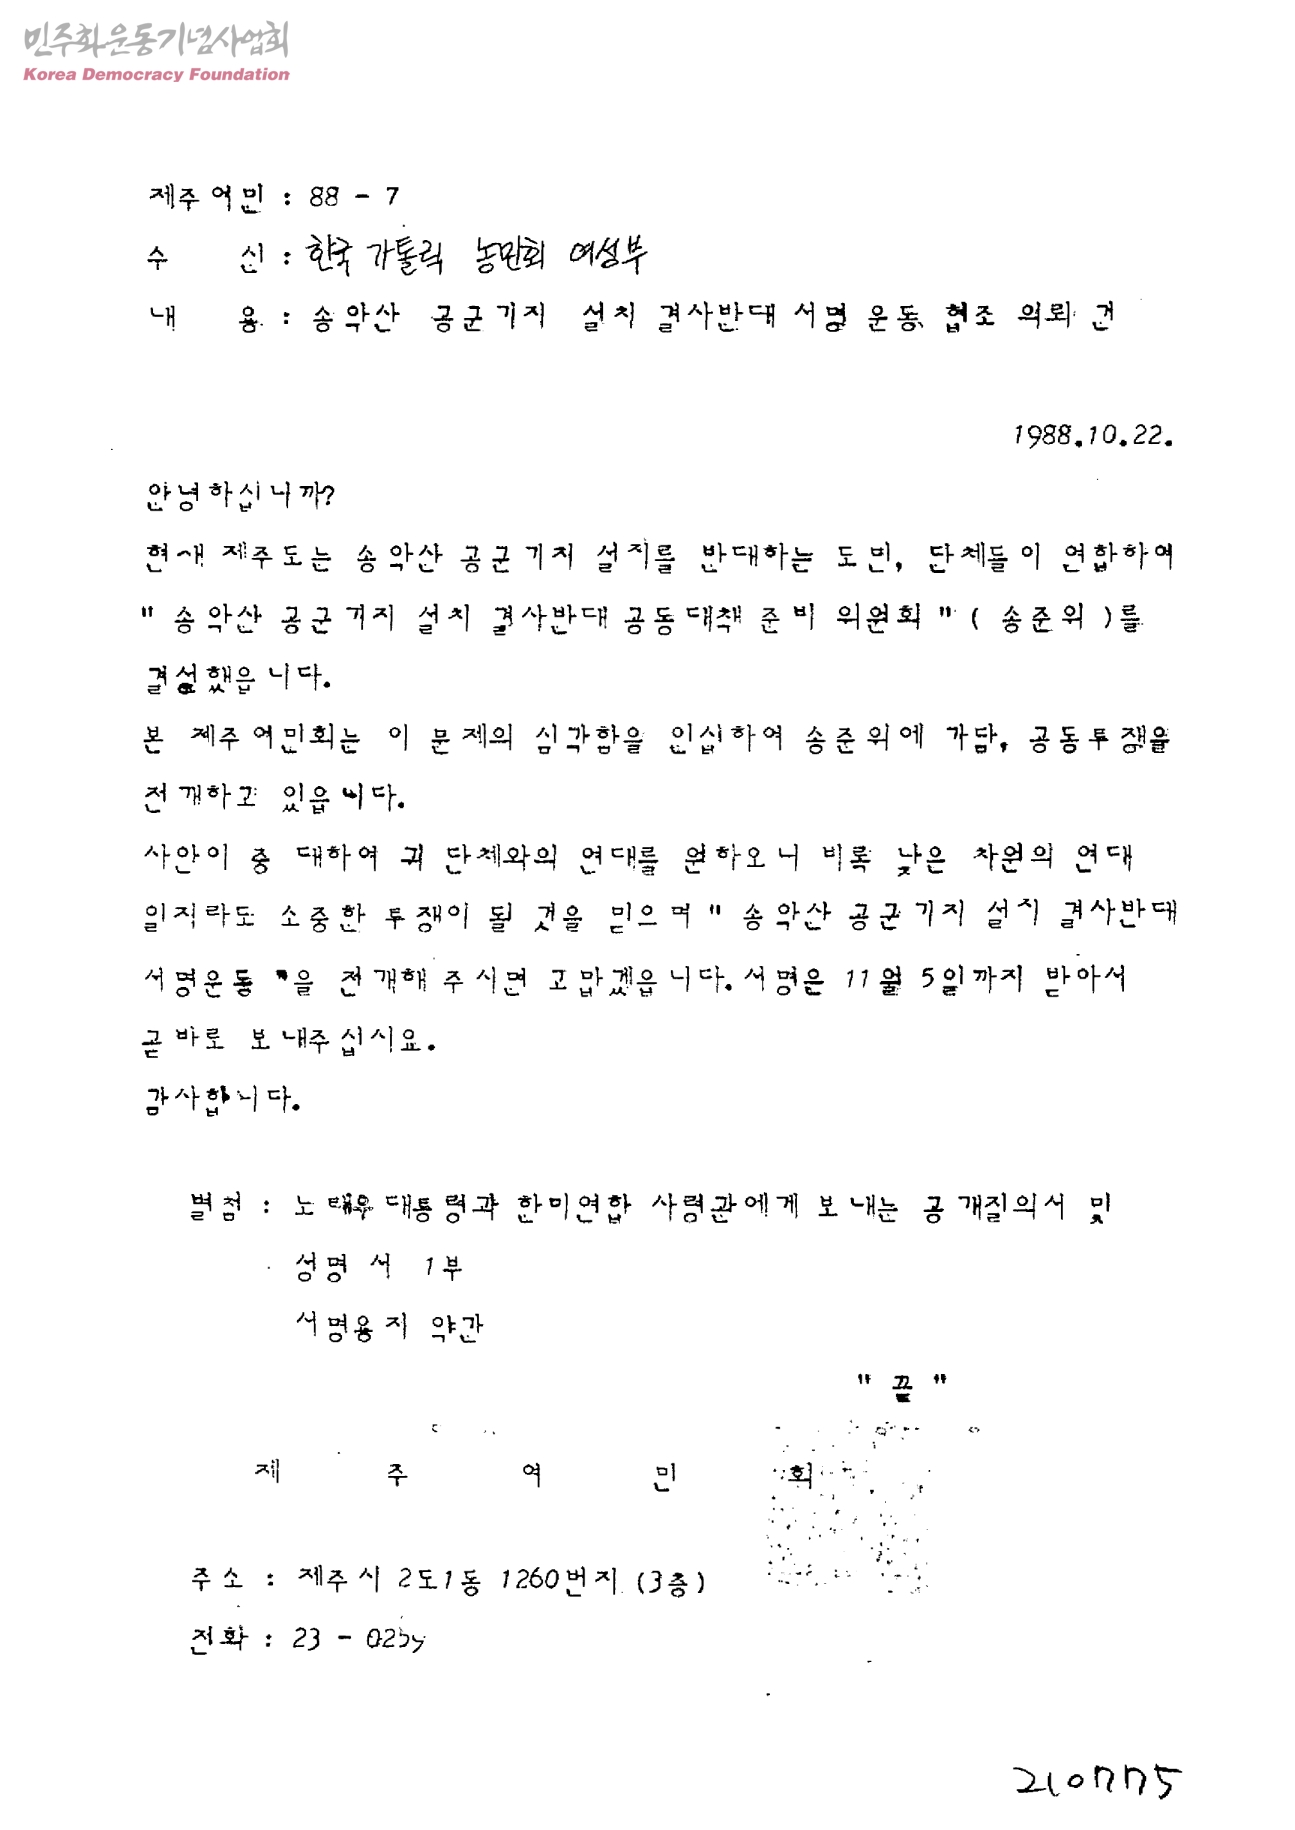 민주화운동기념사업회
Korea Democracy Foundation
제주여민 : 88 - 7
수 신 : 한국 가톨릭 농민회 여성부
내 용 : 송악산 공군기지 설치 결사반대 서명 운동 협조 의뢰 건
1988.10.22.
안녕하십니까?
현재 제주도는 송악산 공군기지 설치를 반대하는 도민, 단체들이 연합하여
" 송악산 공군기지 설치 결사반대 공동대책 준비 위원회 " ( 송준위 )를
결성했읍니다.
본 제주여민회는 이 문제의 심각함을 인십하여 송준위에 가담, 공동투쟁을
전개하고 있읍니다.
사안이 중 대하여 귀 단체와의 연대를 원하오니 비록 낮은 차원의 연대
일지라도 소중한 투쟁이 될 것을 믿으며 " 송악산 공군기지 설치 결사반대
서명운동 "을 전개해 주시면 고맙겠읍니다. 서명은 11월 5일까지 받아서
곧바로 보내주십시요.
감사합니다.
별첨 : 노태우대통령과 한미연합 사령관에게 보내는 공개질의서 및
성명서 1부
서명용지 약간
" 끝 "
제 주 여 민 회
주소 : 제주시 2도1동 1260번지 (3층)
전화 : 23 -
210775